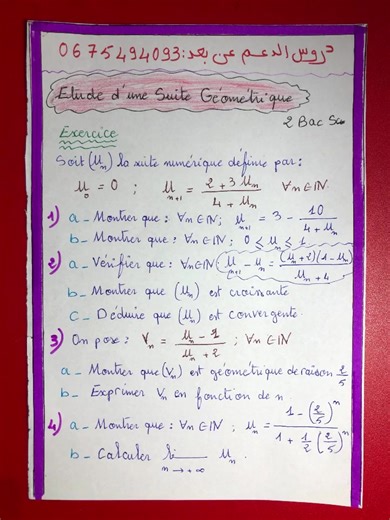 دروس الدعم عن بعد: 0675494093
Etude d'une Suite Géométrique
2 Bac Sc
Exercice
Soit (Un) la suite numérique définie par :
U0 = 0 ; Un+1 = (2 + 3Un)/(4 + Un) ∀n∈IN
1) a - Montrer que : ∀n∈IN ; Un+1 = 3 - 10/(4 + Un)
b - Montrer que : ∀n∈IN ; 0 ≤ Un ≤ 1
2) a - Vérifier que : ∀n∈IN Un+1 - Un = (Un+2)(1-Un)/(Un+4)
b - Montrer que (Un) est croissante
c - Déduire que (Un) est convergente
3) On pose : Vn = (Un - 1)/(Un + 2) ; ∀n∈IN
a - Montrer que (Vn) est géométrique de raison 2/5
b - Exprimer Vn en fonction de n
4) a - Montrer que : ∀n∈IN ; Un = (1 - (2/5)^n)/(1 + 1/2 (2/5)^n)
b - Calculer lim n→+∞ Un.